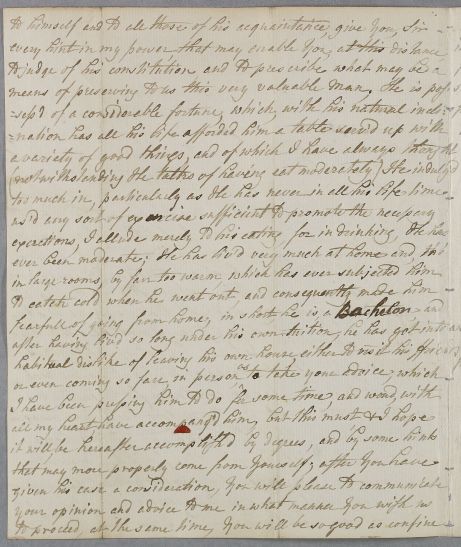 to himself and to all those of his acquaintance, give You, Sir
every hint in my power that may enable You, at this distance
to judge of his constitution, and to prescribe what may be a
means of preserving to us this very valuable man. He is pos-
=sess'd of a considerable fortune, which, with his natural incli-
=nation has all his life afforded him a table serv'd up with
a variety of good things, and of which I have always thought
(notwithstanding He talks of having eat moderately) He indulg'd
too much in, particularly as He has never in all his life time
us'd any sort of exercise sufficient to promote the necessary
exertions, I allude merely to his eating for in drinking, He has
ever been moderate; He has liv'd very much at home and, tho'
in large rooms, by far too warm which has ever subjected him
to catch cold when he went out, and consequently made him
fearfull of going from home; in short he is a Bachelor and
after having liv'd so long under his own tuition, he has got into an
habitual dislike of leaving his own house either to visit his friends
or even coming so far, in person, as to take your advice which
I have been pressing him to do for some time, and wou'd with
all my heart have accompany'd him, but this must & I hope
it will be hereafter accomplish'd by degrees, and by some hints
that may more properly come from Yourself; after You have
given his case a consideration, You will please to communicate
your opinion and advice to me in what manner You wish us
to proceed, at the same time, You will be so good as confine